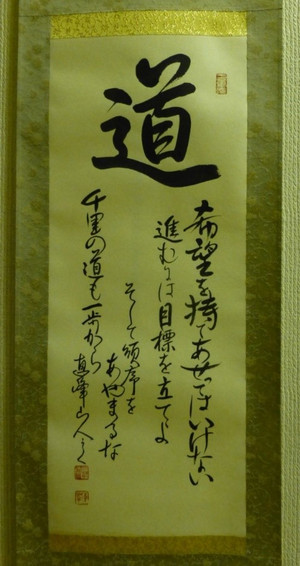 道
希望を持てあせってはいけない
進むには目標を立てよ
そして順序を
あやまるな
千里の道も一歩から